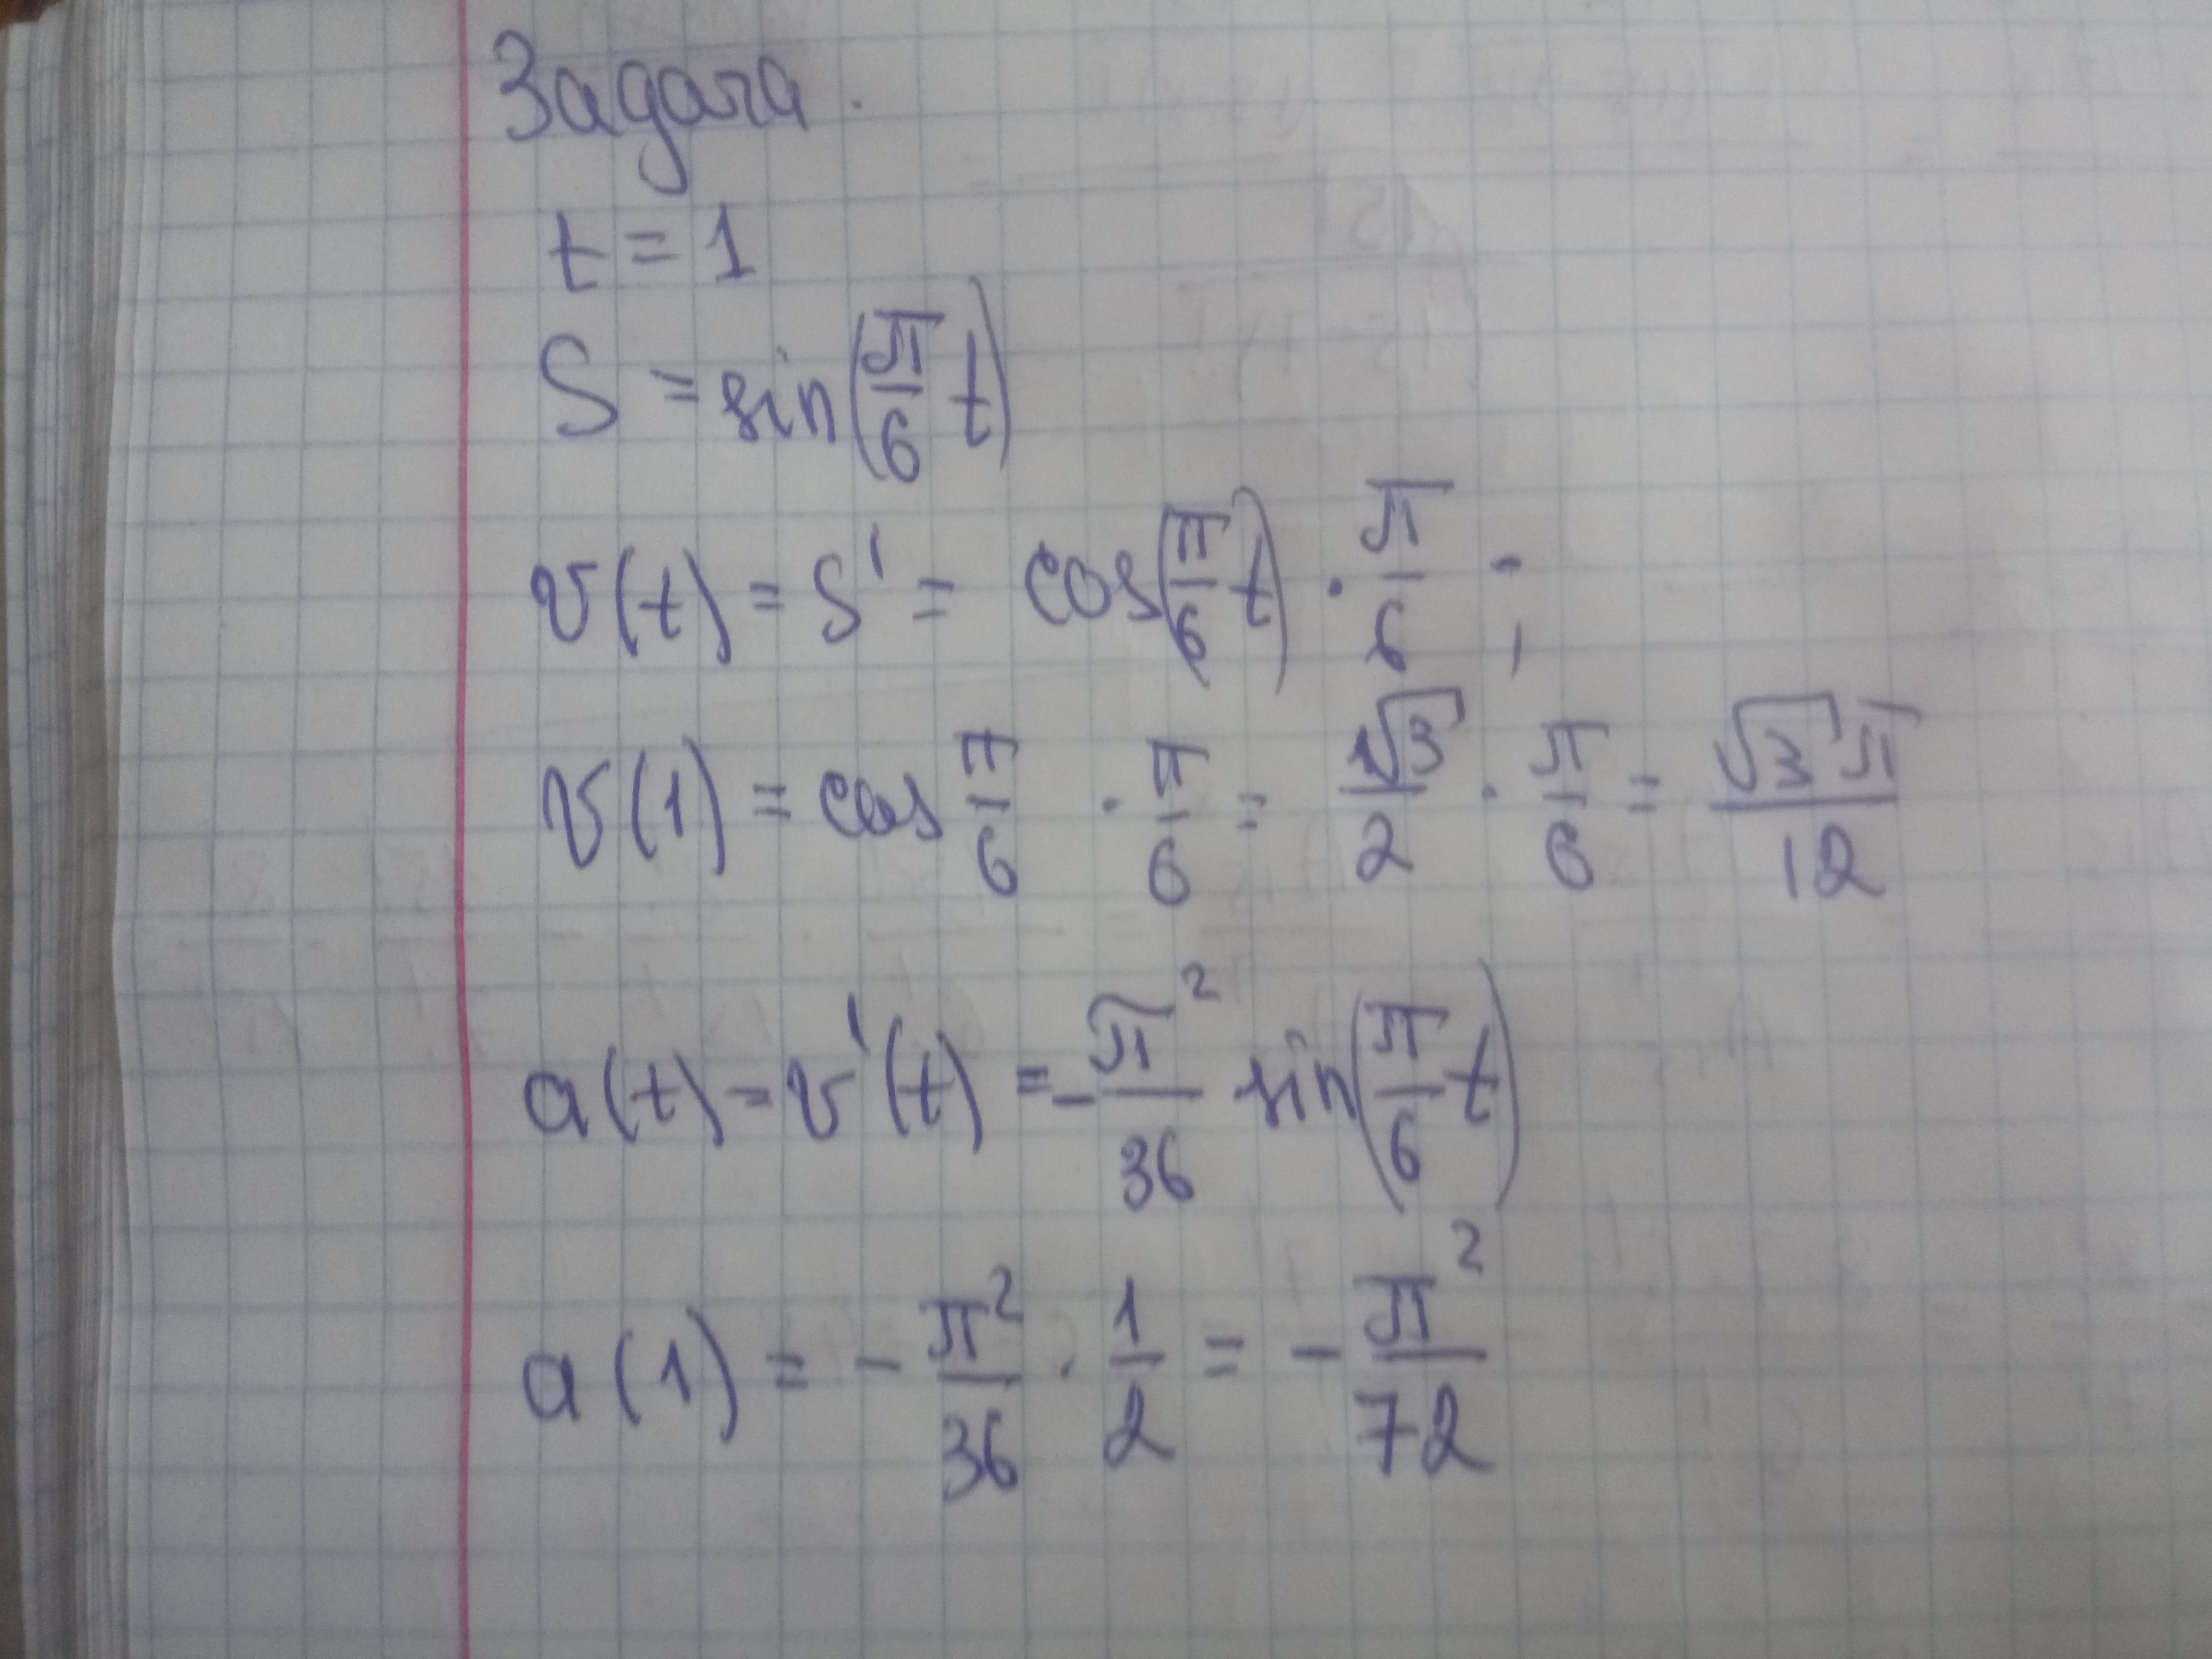 Задача.
t = 1
S = sin(π/6 t)
v(t) = S' = cos(π/6 t) · π/6 ;
v(1) = cos π/6 · π/6 = √3/2 · π/6 = √3π/12
a(t) = v'(t) = -π²/36 sin(π/6 t)
a(1) = - π²/36 · 1/2 = - π²/72